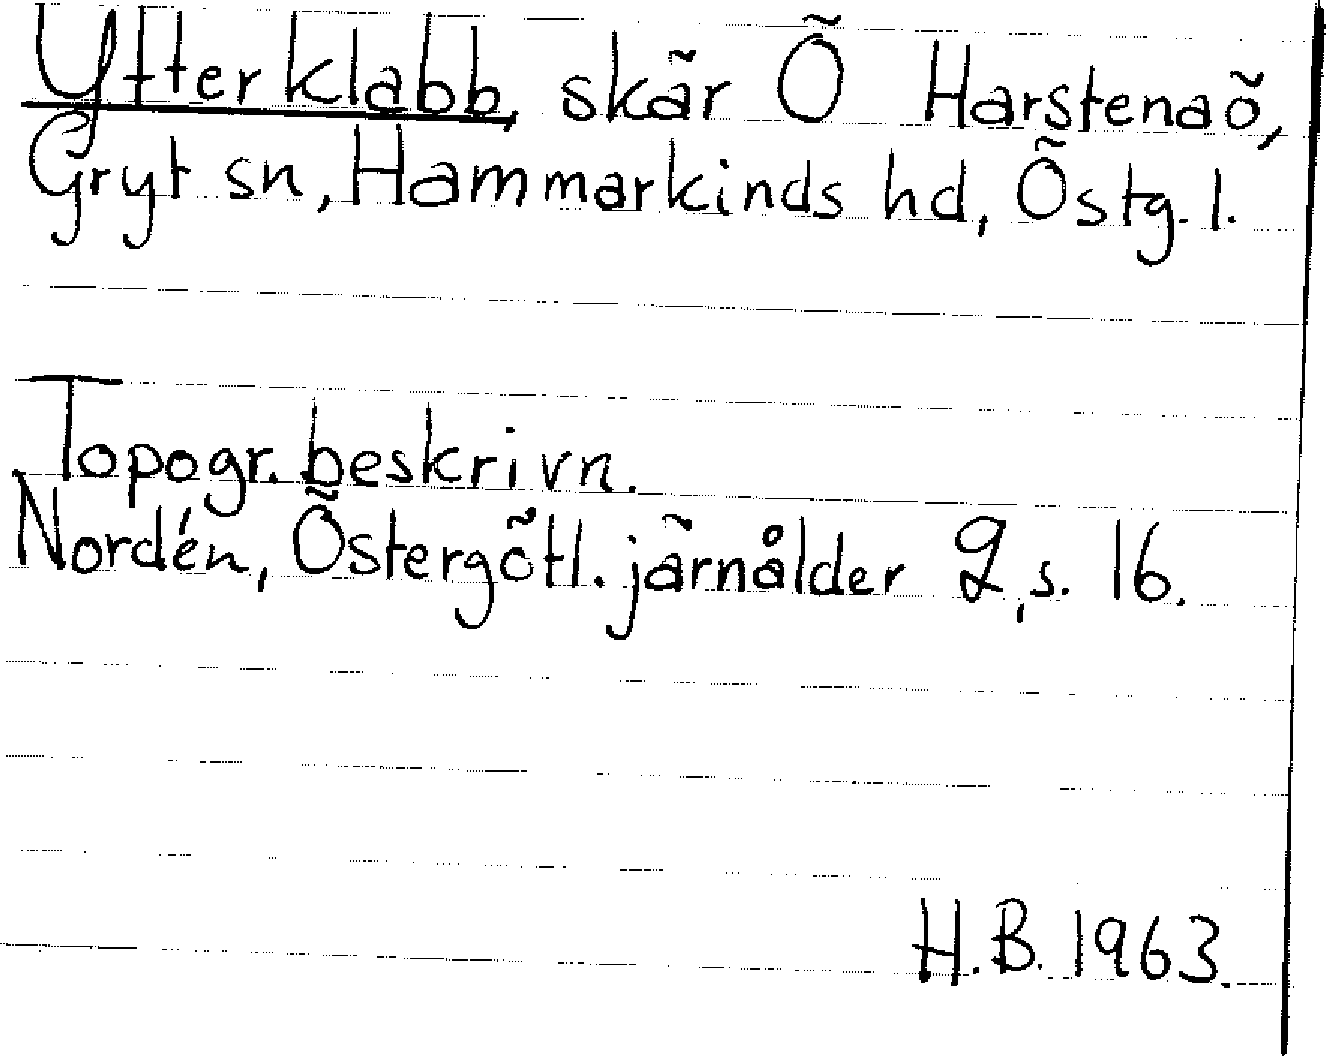 Ytterklabb, skär Ö Harstenaö,
Gryt sn, Hammarkinds hd, Östg. l.
Topogr. beskrivn.
Nordén, Östergötl. järnålder 2, s. 16.
H.B. 1963.